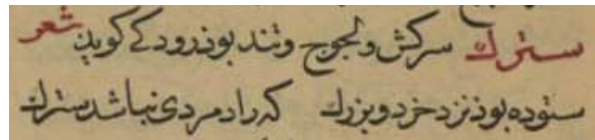 سترك سركش ولجوج وتند بوذ رودكے كويذ شعر
ستوده بوذ نزد خرد و بزرك كه راد مردی نباشد سترك